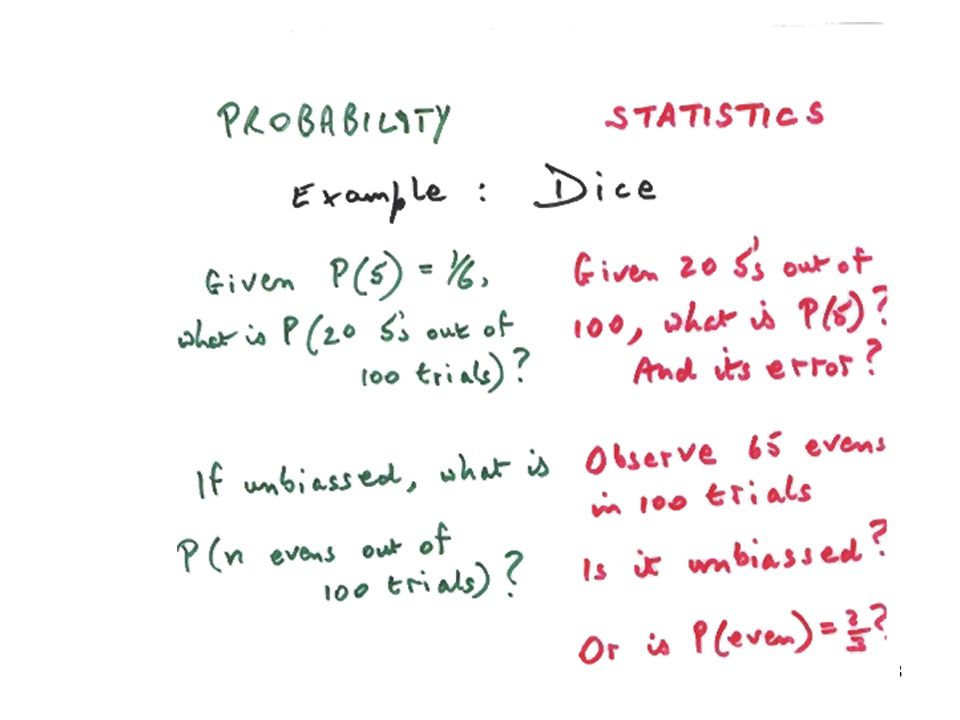 PROBABILITY STATISTICS
Example : Dice
Given P(5) = 1/6,
what is P(20 5's out of
100 trials)?
Given 20 5's out of
100, what is P(5)?
And its error?
If unbiassed, what is
P(n evens out of
100 trials)?
Observe 65 evens
in 100 trials
Is it unbiassed?
Or is P(even) = 2/3?